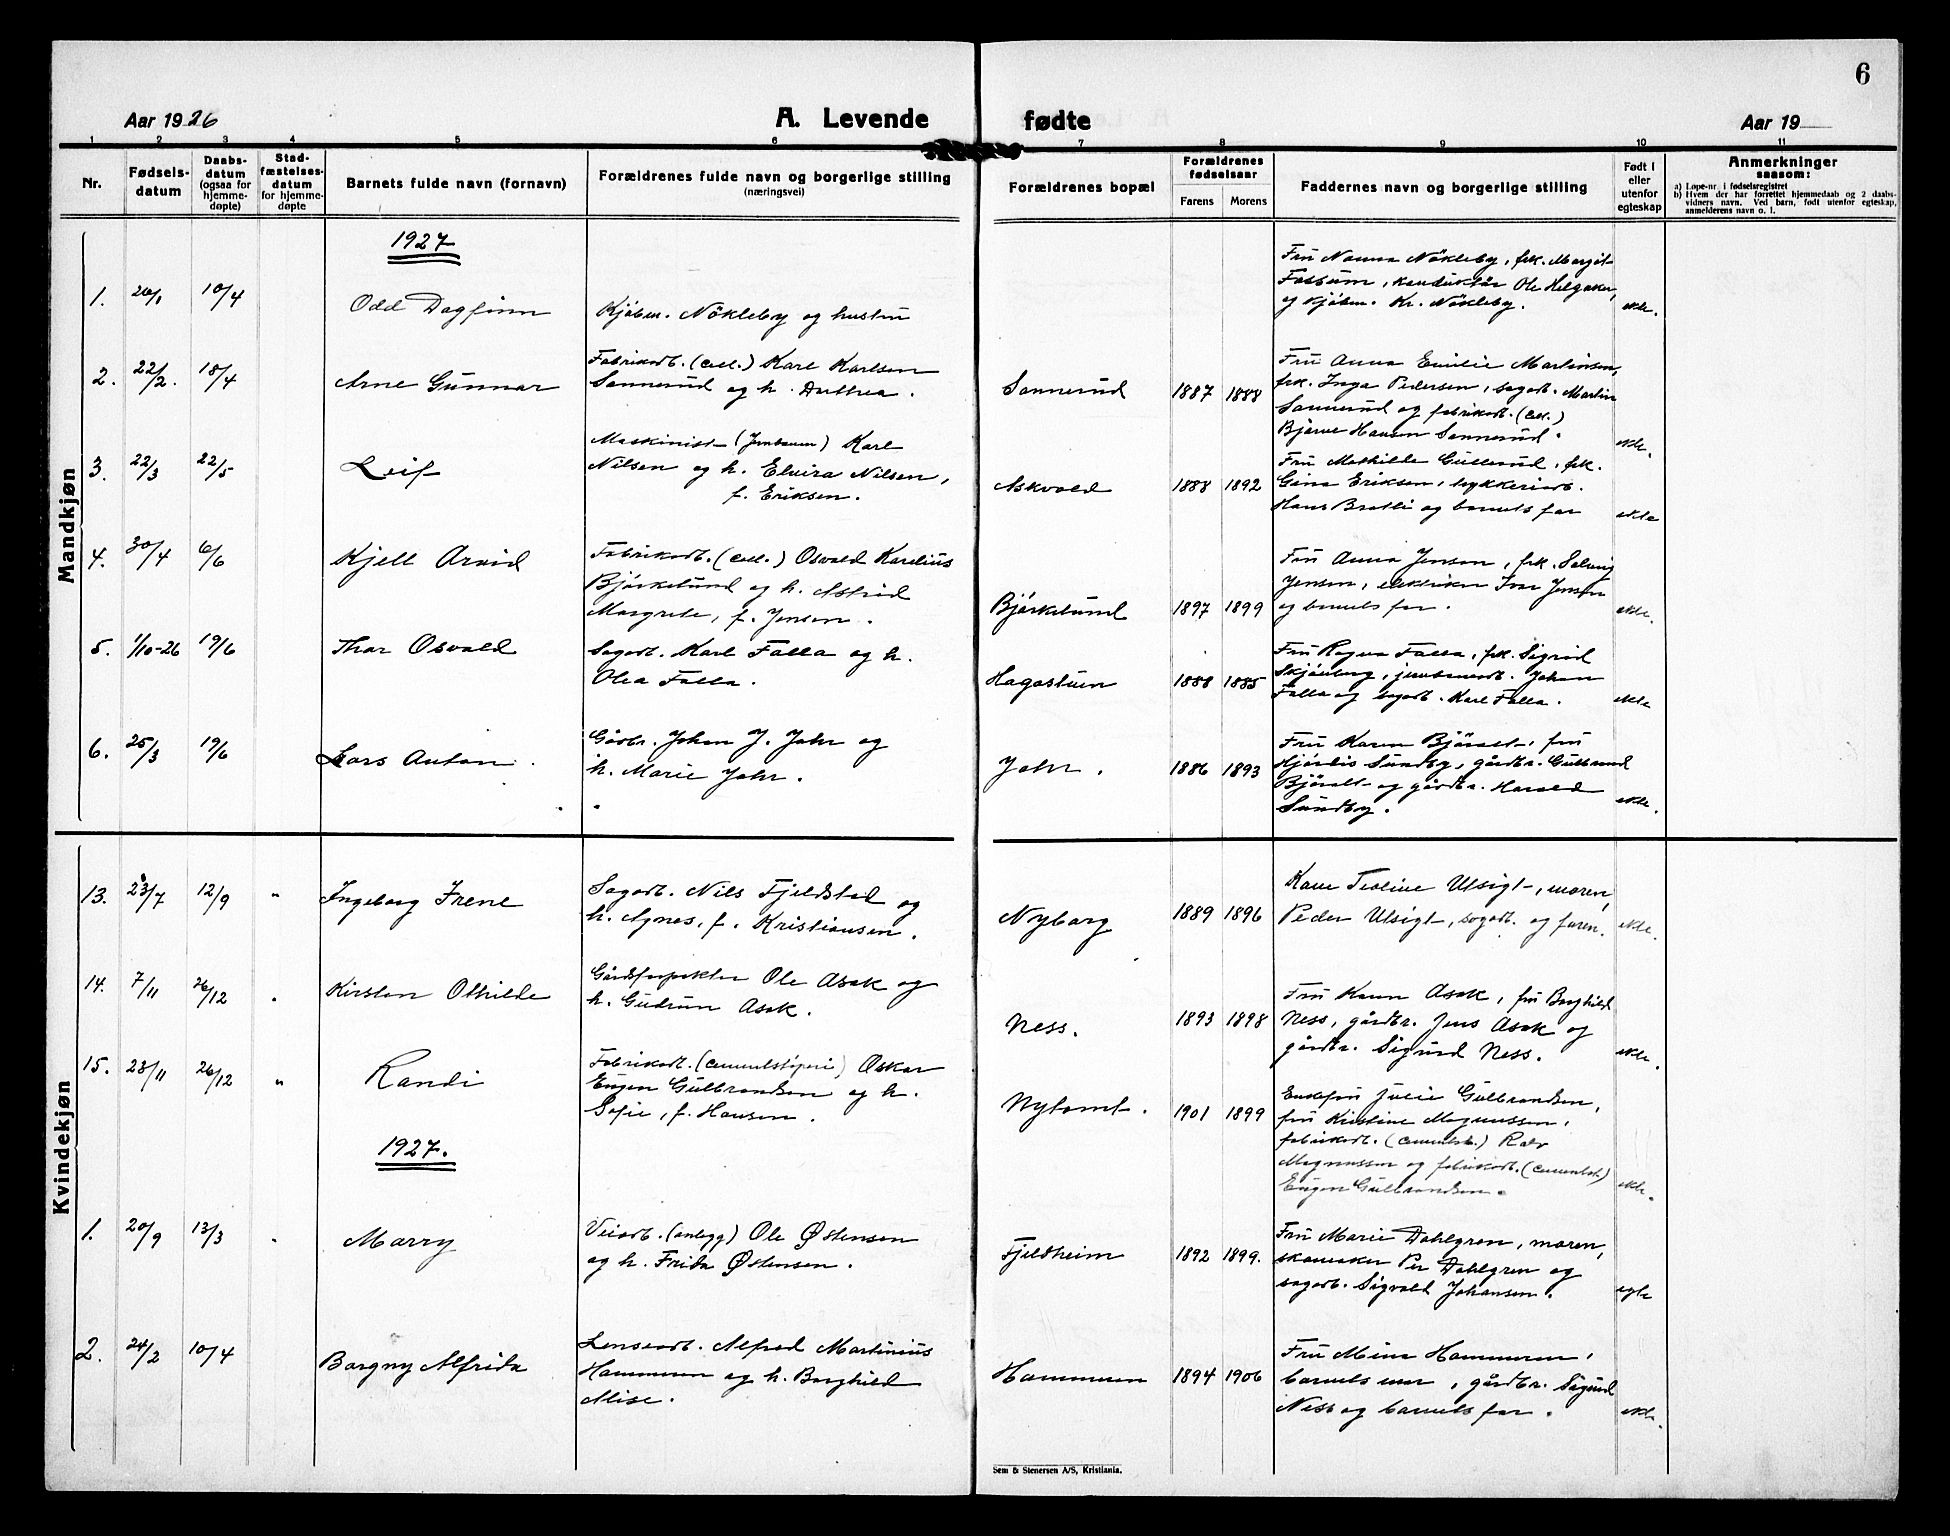 6
Aar 1926
A. Levende
fødte
Aar 19
1 2 3 4 5 6 7 8 9 10 11
Nr.
Fødselsdatum
Daabsdatum (ogsaa for hjemmedøpte)
Stadfæstelsesdatum for hjemmedøpte
Barnets fulde navn (fornavn)
Forældrenes fulde navn og borgerlige stilling (næringsvei)
Forældrenes bopæl
Forældrenes fødselsaar
Farens Morens
Faddernes navn og borgerlige stilling
Født i eller utenfor egteskap
Anmerkninger saasom:
a) Løpe-nr. i fødselsregistret
b) Hvem der har forrettet hjemmedaab og 2 daabsvidners navn. Ved barn, født utenfor egteskap, anmelderens navn o. l.
Mandkjøn
1927
1. 26/1 10/4 Odd Dagfinn
Kjöbm. Nökleby og hustru
Fru Nanna Nökleby, frk. Margit
Fossum, konduktör Ole Helgaker,
og kjöbm. Kr. Nökleby. ekte.
2. 22/2. 18/4 Arne Gunnar
Fabrikarb. (cell.) Karl Karlsen
Sannerud og h. Anthea.
Sannerud 1887 1888
Fru Anna Emilie Martinsen,
frk. Inga Pedersen, sagarb. Martin
Sannerud og fabrikarb. (cell.)
Bjarne Hansen Sannerud. ekte.
3. 22/3 22/5 Leif
Maskinist (Jernbanen) Karl
Nilsen og h. Elvira Nilsen,
f. Eriksen.
Askvold 1888 1892
Fru Mathilde Gullerud, frk.
Gina Eriksen, trykkeriarb.
Hans Bratli og barnets far ekte
4. 30/4 6/6 Kjell Arvid
Fabrikarb. (cell.) Osvald Karelius
Björkelund og h. Astrid
Margrete, f. Jensen.
Björkelund 1897 1899
Fru Anna Jensen, frk. Solveig
Jensen, elektriker Ivar Jensen
og barnets far. ekte.
5. 1/10-26 19/6 Thor Osvald
Sagarb. Karl Falla og h.
Olea Falla.
Hagastuen 1888 1885
Fru Ragna Falla, frk. Sigrid
Skjönberg, jernbanearb. Johan
Falla og sagarb. Karl Falla. ekte
6. 25/3 19/6 Lars Anton.
Gårbr. Johan J. Jahr og
h. Marie Jahr.
Jahr. 1886 1893
Fru Karen Björalt, fru
Hjördis Sundby, gårdbr. Gulbrand
Björalt og gårdbr. Harald
Sundby. ekte.
Kvindekjøn
13. 23/7 12/9 " Ingeborg Irene
Sagarb. Nils Fjeldstad og
h. Agnes, f. Kristiansen.
Nyborg 1889 1896
Kone Teoline Utsigt, moren,
Peder Utsigt, sagarb. og faren. ekte.
14. 7/11 26/12 " Kirsten Othilde
Gårdforpakter Ole Asak og
h. Gudrun Asak.
Ness. 1893 1898
Fru Karen Asak, fru Borghild
Ness, gårdbr. Jens Asak og
gårdbr. Sigurd Ness. ekte.
15. 23/11 26/12 " Randi
Fabrikarb. (cementstöperi) Oskar
Eugen Gulbrandsen og h.
Sofie, f. Hansen.
Nytomt. 1901 1899
Enkefru Julie Gulbrandsen,
fru Kristine Magnussen,
fabrikarb. (cementst.)
Magnussen og fabrikarb. (cementst.)
Eugen Gulbrandsen. ekte.
1927.
1. 20/9 13/3 " Marry
Veiarb. (anlegg) Ole Østensen
og h. Frida Østensen.
Fjeldheim 1892 1899.
Fru Marie Dahlgren, moren,
skomaker Per Dahlgren og
sagarb. Sigvald Johansen. egte
2. 24/2 10/4 Borgny Alfrida
Lensearb. Alfred Martinius
Hammeren og h. Borghild
Alise.
Hammeren 1894 1906
Fru Mina Hammeren,
barnets mor, gårdbr. Sigurd
Ness og barnets far. ekte.
Sem & Stenersen A/S, Kristiania.